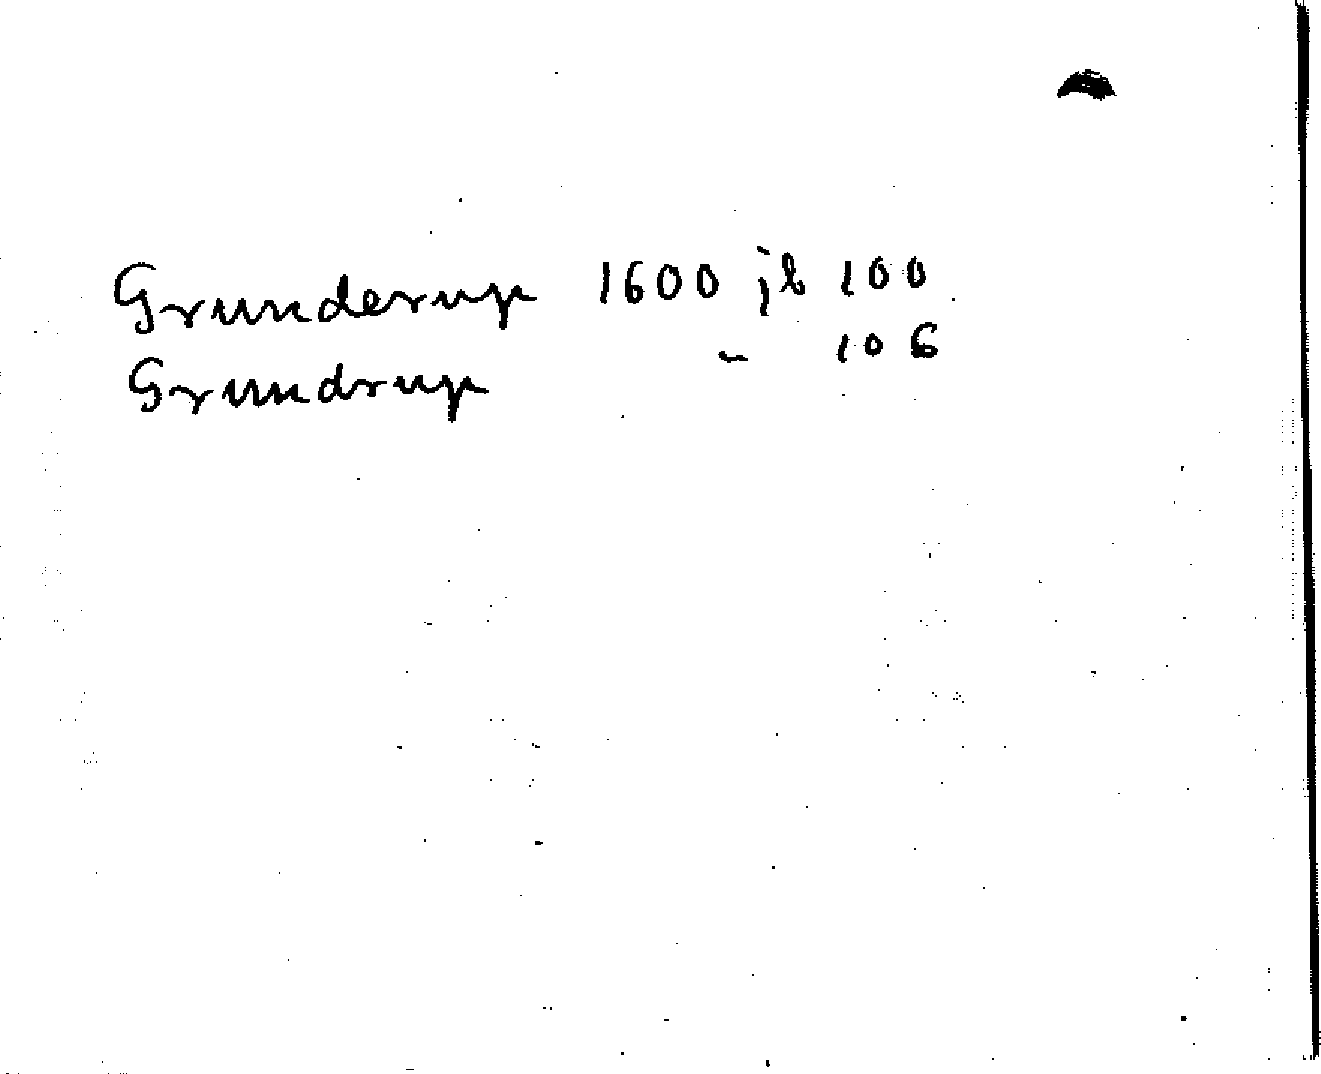 Grunderup 1600 jb 100
Grundrup - 106